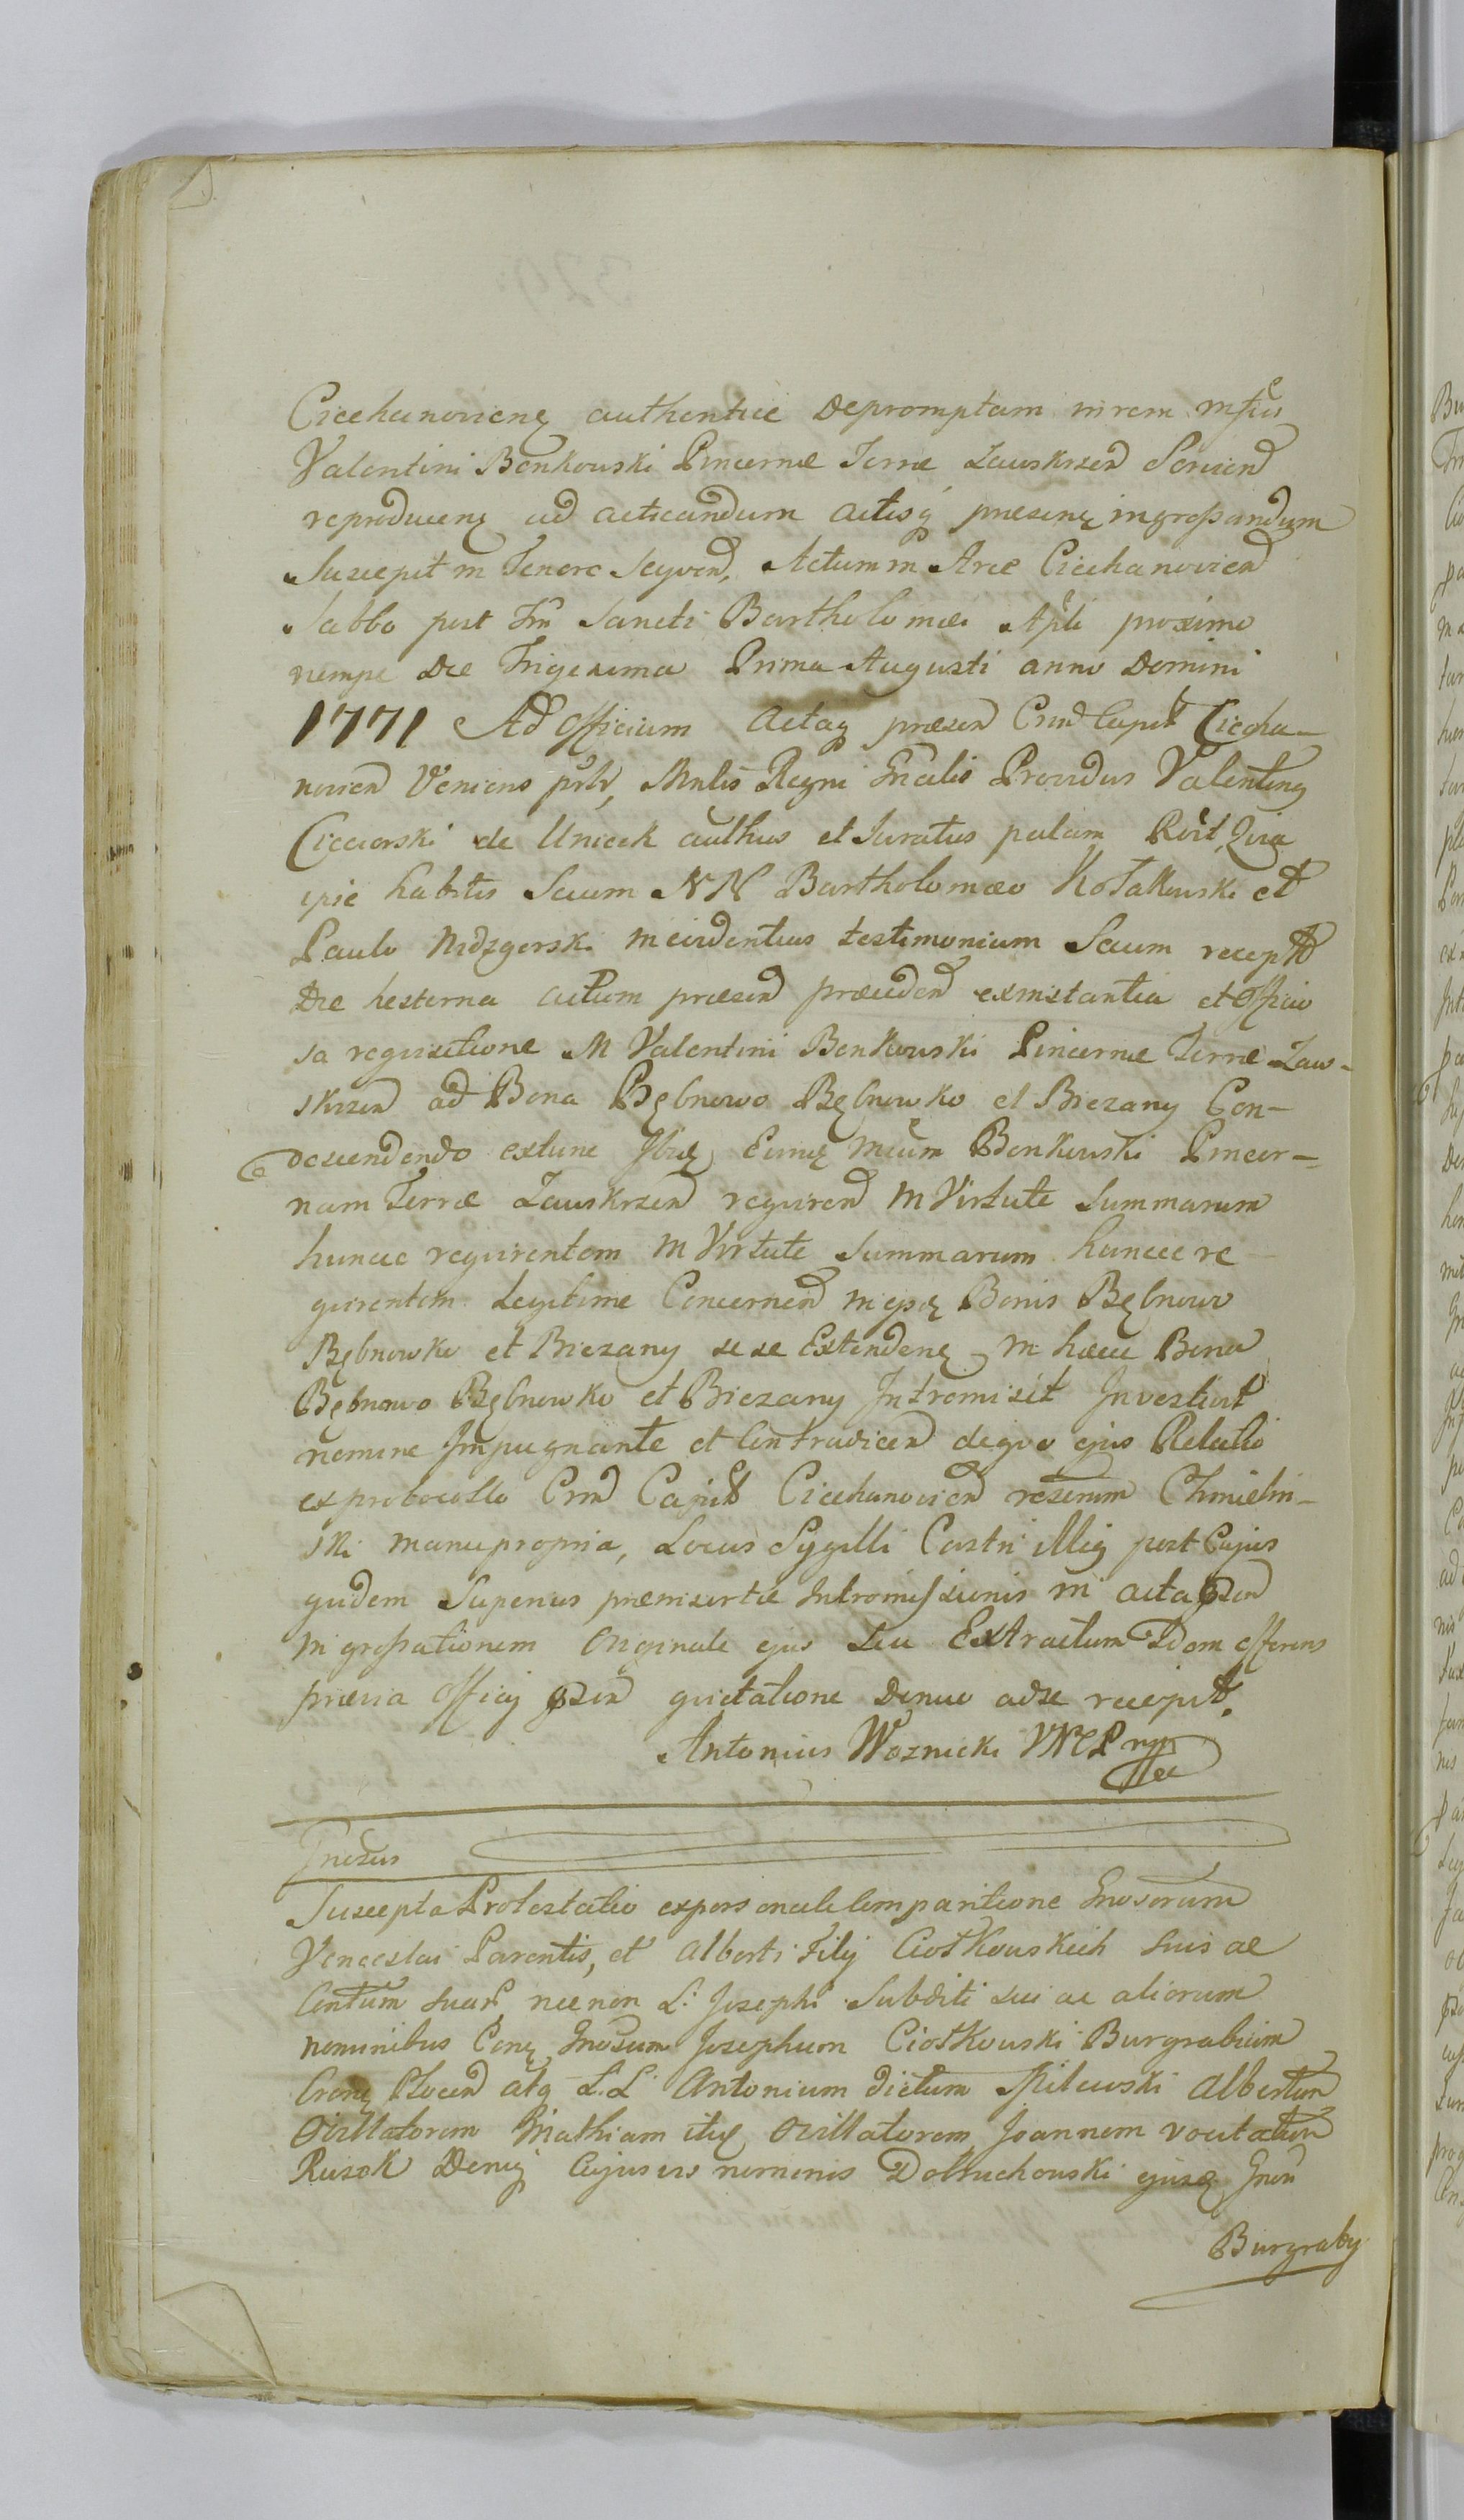 Ciechanovienę authentice depromptam in rem
Valentini Benkowski Pincernæ Terræ Zawskrzen Servien
reproducenę ad acticandum actisq præsenę ingrossandum
Suscepit in Tenore Seqven, Actum in Arce Ciechanovien
Sabbo post Fm Sancti Bartholomæi Apli proximo
nempe Die Trigesima Prima Augusti anno Domini
1771 Ad Officium Actaq præsen Crim Capit Ciecha-
novien Veniens Mnlis Regni Gnalis Providus Valentinq
de Unieck authus et Juratus palam Quia
ipse habitis Secum NN Bartholomæo Kołakowski et
Paulo Nidzgorski incirdentius testimonium Secum
Die hesterna actum præsen præceden ex instantia et Officio
sa requisitione M Valentini Benkowski Pincernæ Terræ Zaw-
skrzen ad Bona Bębnowo Bębnowko et Biezany Con-
descendendo extunc Benkowski Pincer-
nam Terræ Zawskrzen requiren in Virtute Summarum
huncce requirentem in Virtute Summarum huncce re
quirentem Legitime Concernen in Bonis Bębnowo
Bębnowko et Biezany sese Extendenę in hæcce Bona
Bębnowo Bębnowko et Biezany Intromisit Investivit
nemine Impugnante et Contradicen deqvo ejus Relatio
ex protocollo Crim Capit Ciechanovien Chmielin-
ski manu propria, Locus Sygilli Castri illiq post Cujus
quidem Superius præinsertæ Intromissionis in acta
ingrossationem Originale ejus seu Extractum Idem offerens
prævia Officij quietatione denuo ad se recepit.
Antonius Woznicki
Gnosus
Suscepta Protestatio ex personali Comparitione Gnosorum
Venceslai Parentis, et Alberti Filij Ciotkowskich Suis ac
Contum suar, necnon L: Josephi Subditi sui ac aliorum
nominibus Conę Gnosum Josephum Ciotkowski Burgrabium
Plocen atq L.L. Antonium dictum Milewski Albertum
Ovillatorem Mathiam Ovillatorem Joannem vocitatum
Rusek Deniq Cujusvis nominis Dołbuchowski
Burgraby